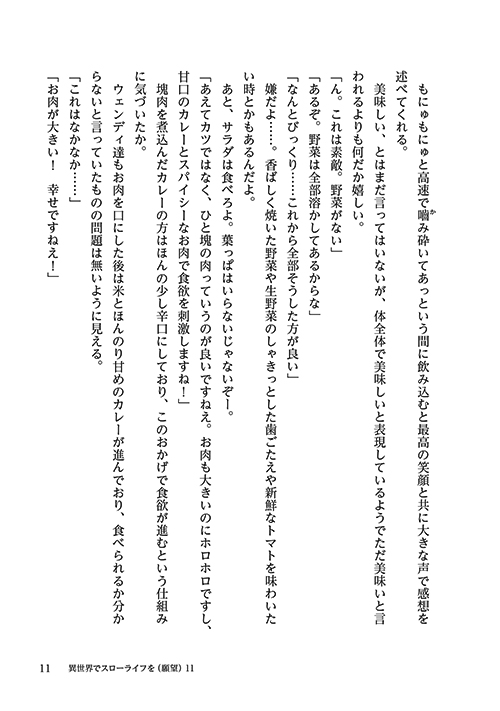 もにゅもにゅと高速で嚙み砕いてあっという間に飲み込むと最高の笑顔と共に大きな声で感想を
か
述べてくれる。
　美味しい、とはまだ言ってはいないが、体全体で美味しいと表現しているようでただ美味いと言
われるよりも何だか嬉しい。
「ん。これは素敵。野菜がない」
「あるぞ。野菜は全部溶かしてあるからな」
「なんとびっくり……これから全部そうした方が良い」
　嫌だよ……。香ばしく焼いた野菜や生野菜のしゃきっとした歯ごたえや新鮮なトマトを味わいた
い時とかもあるんだよ。
　あと、サラダは食べろよ。葉っぱはいらないじゃないぞー。
「あえてカツではなく、ひと塊の肉っていうのが良いですねえ。お肉も大きいのにホロホロですし、
甘口のカレーとスパイシーなお肉で食欲を刺激しますね！」
　塊肉を煮込んだカレーの方はほんの少し辛口にしており、このおかげで食欲が進むという仕組み
に気づいたか。
　ウェンディ達もお肉を口にした後は米とほんのり甘めのカレーが進んでおり、食べられるか分か
らないと言っていたものの問題は無いように見える。
「これはなかなか……」
「お肉が大きい！　幸せですねえ！」
11　異世界でスローライフを（願望）11